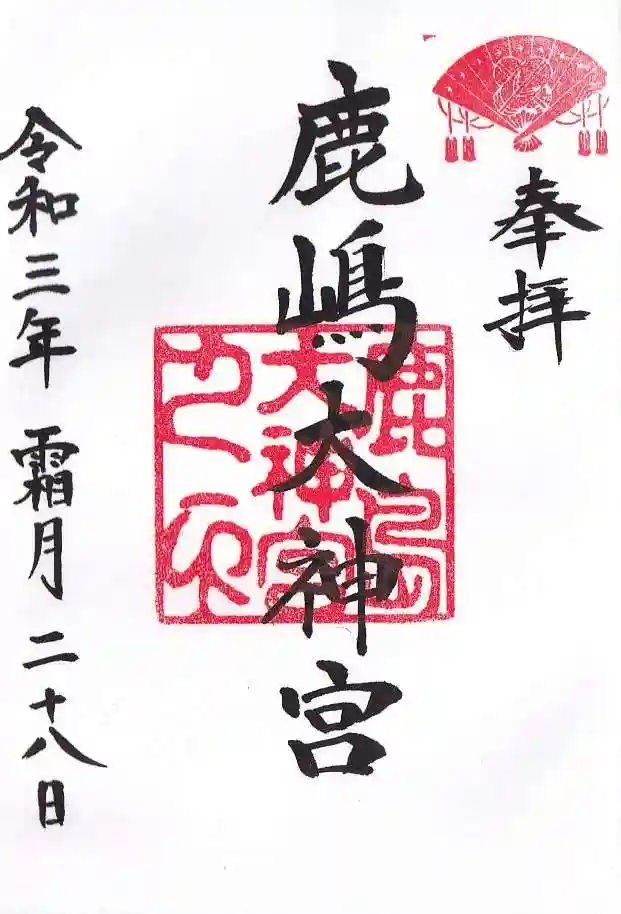 奉拝
鹿嶋大神宮
鹿島
大神宮
之印
令和三年 霜月 二十八日